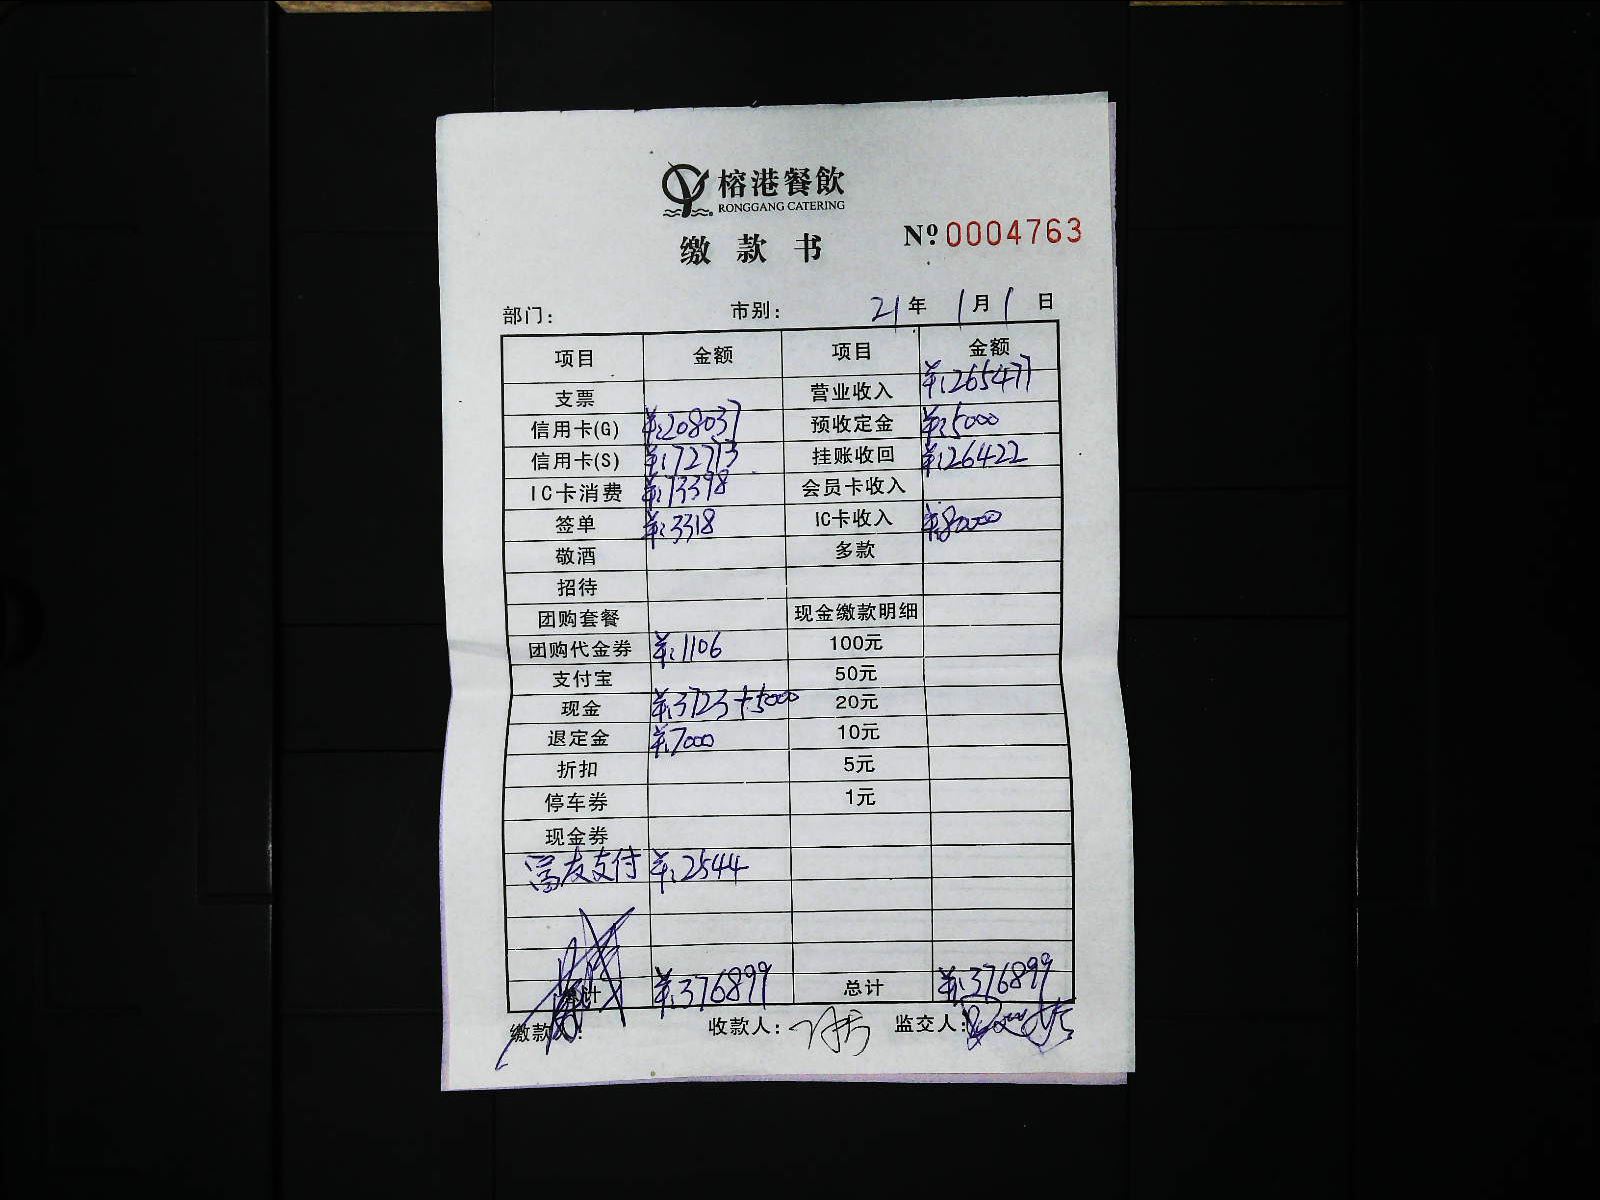 榕港餐飲
RONGGANG CATERING
缴款书 Nº 0004763
部门： 市别： 21年 1月 1日
项目 金额 项目 金额
支票 营业收入 ¥:265477
信用卡(G) ¥:208037 预收定金 ¥:5000
信用卡(S) ¥:72773 挂账收回 ¥:26422
IC卡消费 ¥:73398 会员卡收入
签单 ¥:3318 IC卡收入 ¥:80000
敬酒 多款
招待
团购套餐 现金缴款明细
团购代金券 ¥:1106 100元
支付宝 50元
现金 ¥:3723+5000 20元
退定金 ¥:7000 10元
折扣 5元
停车券 1元
现金券
富友支付 ¥:2544
总计 ¥:376899 总计 ¥:376899
缴款人： 收款人： 监交人：